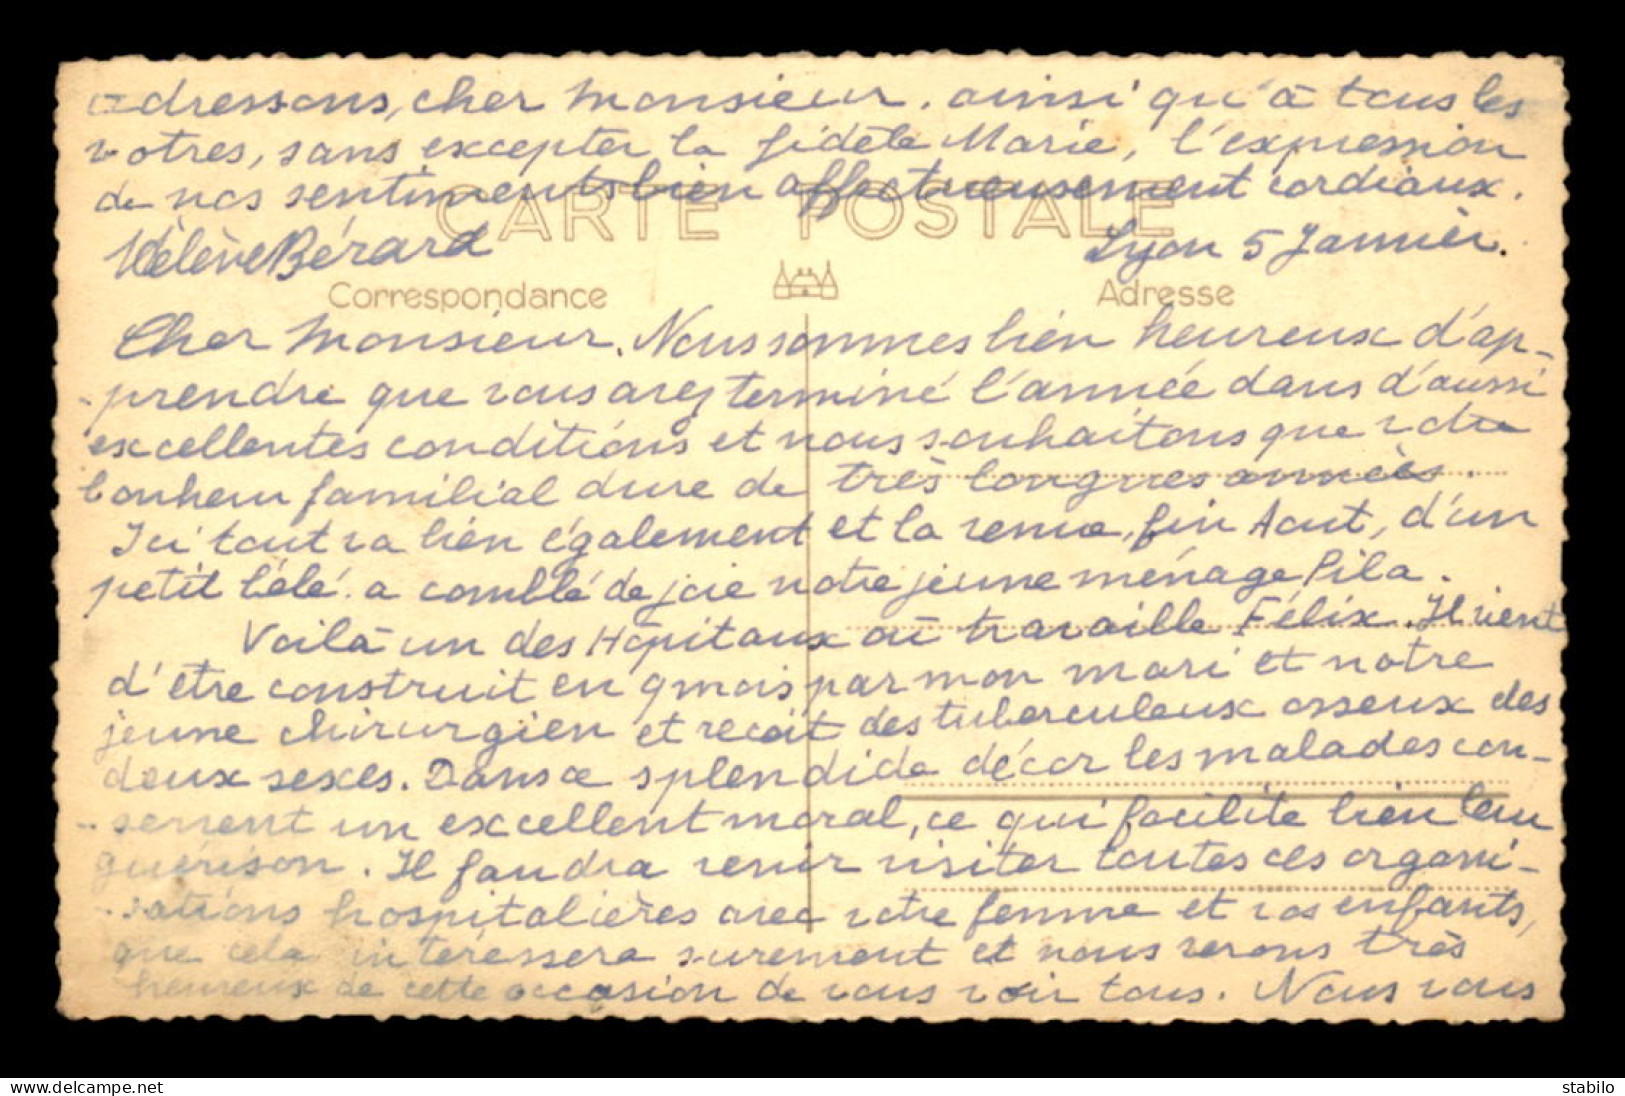 adressons, cher Monsieur. ainsi qu'à tous les
votres, sans excepter la fidèle Marie, l'expression
de nos sentiments bien affectueusement cordiaux.
CARTE POSTALE
Hélène Bérard
Lyon 5 Janvier.
Correspondance
Adresse
Cher Monsieur. Nous sommes bien heureux d'ap-
-prendre que vous avez terminé l'année dans d'aussi
excellentes conditions et nous souhaitons que votre
bonheur familial dure de très longues années.
Ici tout va bien également et la venue, fin Aout, d'un
petit bébé. a comblé de joie notre jeune ménage Pila.
Voilà un des Hôpitaux où travaille Félix. Il vient
d'être construit en 9 mois par mon mari et notre
jeune chirurgien et reçoit des tuberculeux osseux des
deux sexes. Dans ce splendide décor les malades con-
-servent un excellent moral, ce qui facilite bien leur
guérison. Il faudra venir visiter toutes ces organi-
-sations hospitalières avec votre femme et vos enfants,
que cela intéressera surement et nous serons très
heureux de cette occasion de vous voir tous. Nous vous
www.delcampe.net
stabilo